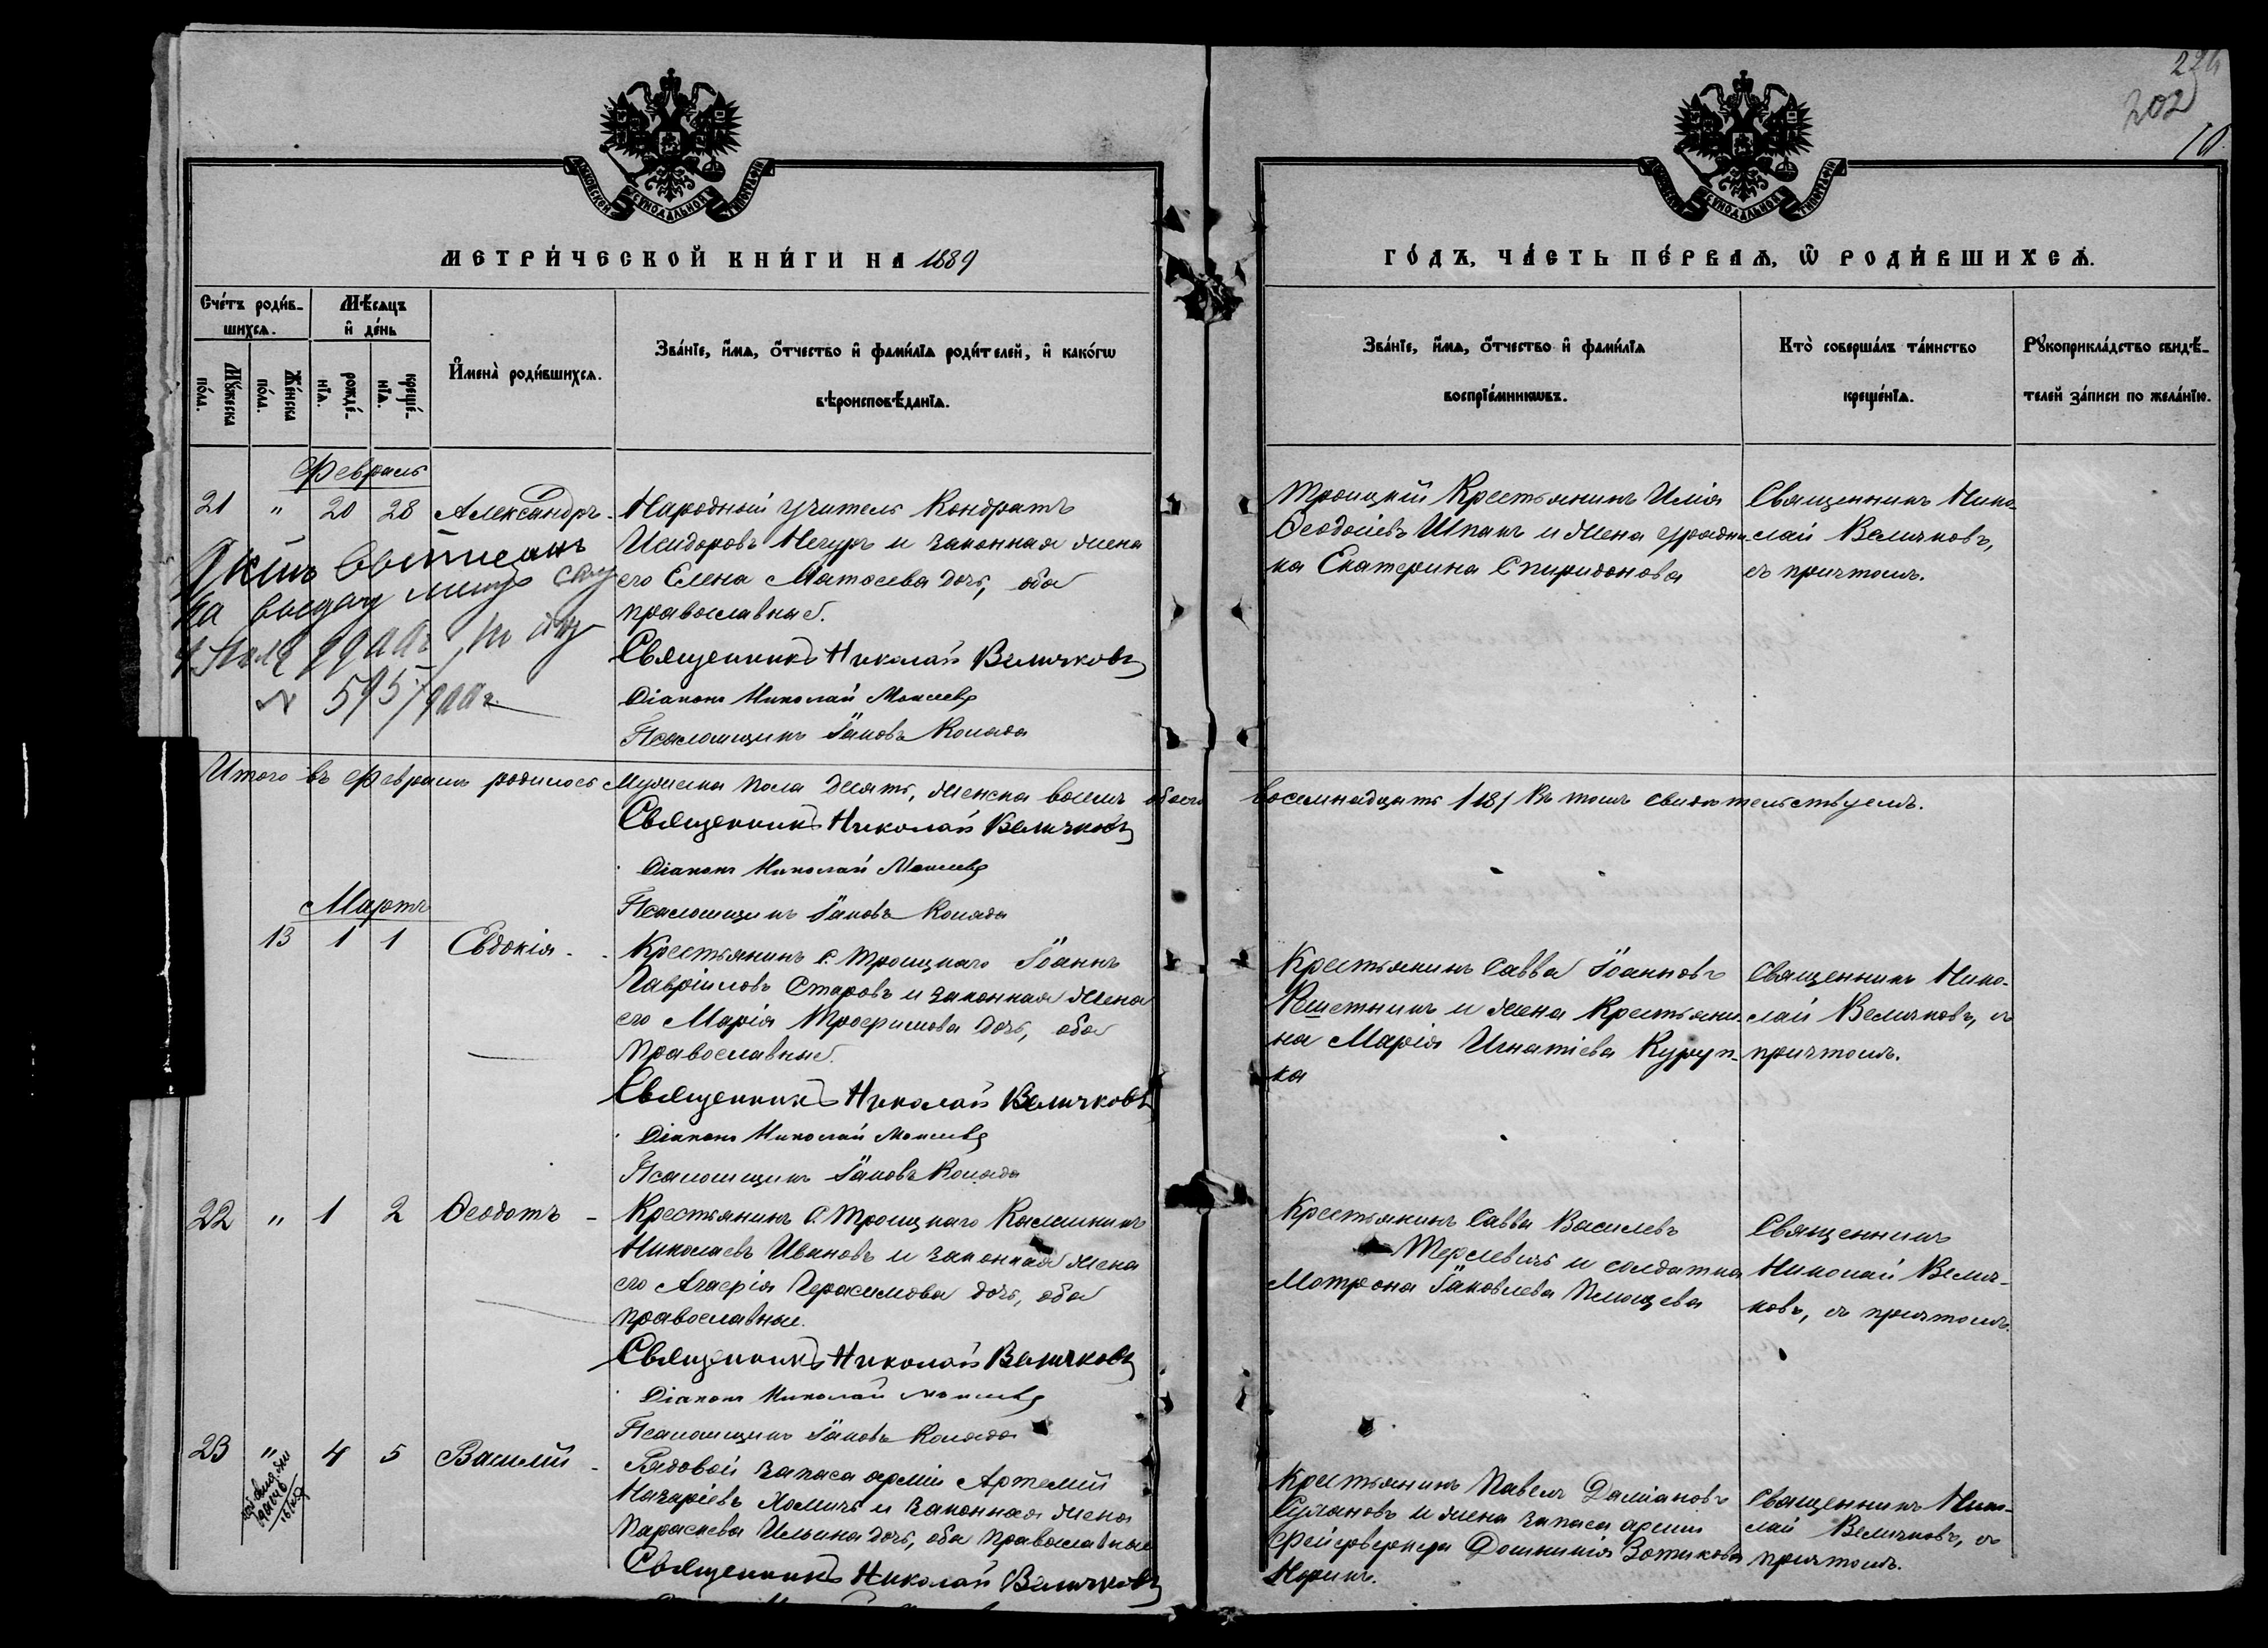 202
10
МОСКОВСКОЙ СѴНОДАЛЬНОЙ ТИПОГРАФІИ
МОСКОВСКОЙ СѴНОДАЛЬНОЙ ТИПОГРАФІИ
МЕТРИ́ЧЕСКОЙ КНИ́ГИ НА 1889
ГО́ДЪ, ЧА́СТЬ ПЕ́РВАѦ, Ѡ҆ РОДИ́ВШИХСѦ.
Сче́тъ роди́в-
шихсѧ.
Му́жеска
по́ла.
Же́нска
по́ла.
Мѣ́сѧцъ
и҆ де́нь
рожде́-
нїѧ.
креще́-
нїѧ.
И҆мена̀ роди́вшихсѧ.
Зва́нїе, и҆́мѧ, ѻ҆́тчество и҆ фами́лїѧ роди́телей, и҆ како́гѡ
вѣроисповѣ́данїѧ.
Зва́нїе, и҆́мѧ, ѻ҆́тчество и҆ фами́лїѧ
воспрїе́мникѡвъ.
Кто̀ соверша́лъ та́инство
креще́нїѧ.
Рꙋкоприкла́дство свидѣ́-
телей за́писи по жела́нїю.
Февраль
21 " 20 28 Александръ. Народный учитель Кондратъ
Исидоровъ Нечуръ и законная жена
его Елена Матѳеева дочь, оба
православные.
Священникъ Николай Величковъ
Діаконъ Николай Моисеевъ
Псаломщикъ Іаковъ Коладо
выписанъ
на выдачу
№ 595/900 г.
Троицкій Крестьянинъ Илія
Ѳеодосіевъ Шпакъ и жена урядни-
ка Екатерина Спиридонова
Священникъ Нико-
лай Величковъ,
съ причтомъ.
Итого въ Февралѣ родилось Мужеска пола десять, женска восемь обоего восемнадцать /18/ Въ томъ свидѣтельствуемъ.
Священникъ Николай Величковъ
Діаконъ Николай Моисеевъ
Псаломщикъ Іаковъ Коладо
Мартъ
13 1 1 Евдокія. Крестьянинъ с. Троицкаго Іоаннъ
Гавріиловъ Старовъ и законная жена
его Марія Трофимова дочь, оба
православные.
Священникъ Николай Величковъ
Діаконъ Николай Моисеевъ
Псаломщикъ Іаковъ Коладо
Крестьянинъ Савва Іоанновъ
Решетникъ и жена Крестьяни-
на Марія Игнатіева Куруп-
ка
Священникъ Нико-
лай Величковъ, съ
причтомъ.
22 " 1 2 Ѳеодотъ - Крестьянинъ с. Троицкаго Калинникъ
Николаевъ Ивановъ и законная жена
его Агаѳія Герасимова дочь, оба
православные.
Священникъ Николай Величковъ
Діаконъ Николай Моисеевъ
Псаломщикъ Іаковъ Коладо
Крестьянинъ Савва Василевъ
и солдатка
Матрона Іаковлева
Священникъ
Николай Велич-
ковъ, съ причтомъ.
23 " 4 5 Василій - Рядовой запаса арміи Артемій
Назаріевъ Хомичъ и законная жена
Параскева Ильина дочь, оба православные
Священникъ Николай Величковъ
Крестьянинъ Павелъ Даміановъ
и жена запаса арміи
фейерверкера Домникія Зотикова
Священникъ Нико-
лай Величковъ, съ
причтомъ.